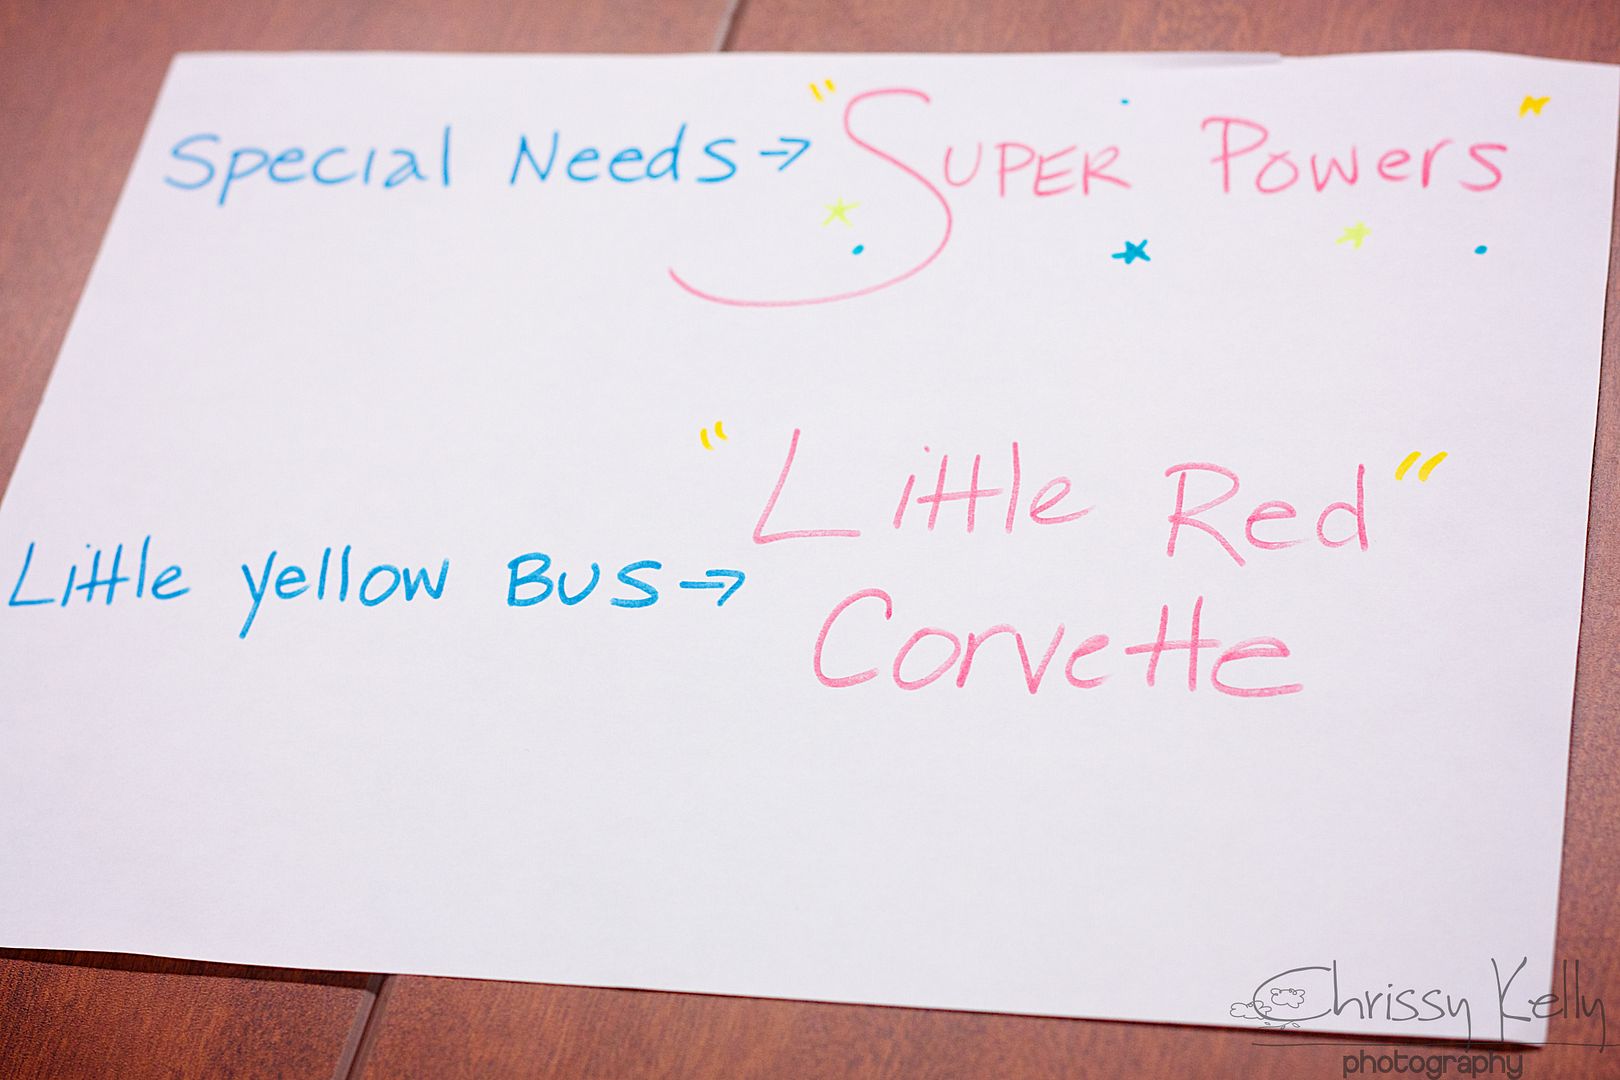 Special Needs → "Super Powers"
Little yellow Bus → "Little Red"
Corvette
Chrissy Kelly
photography